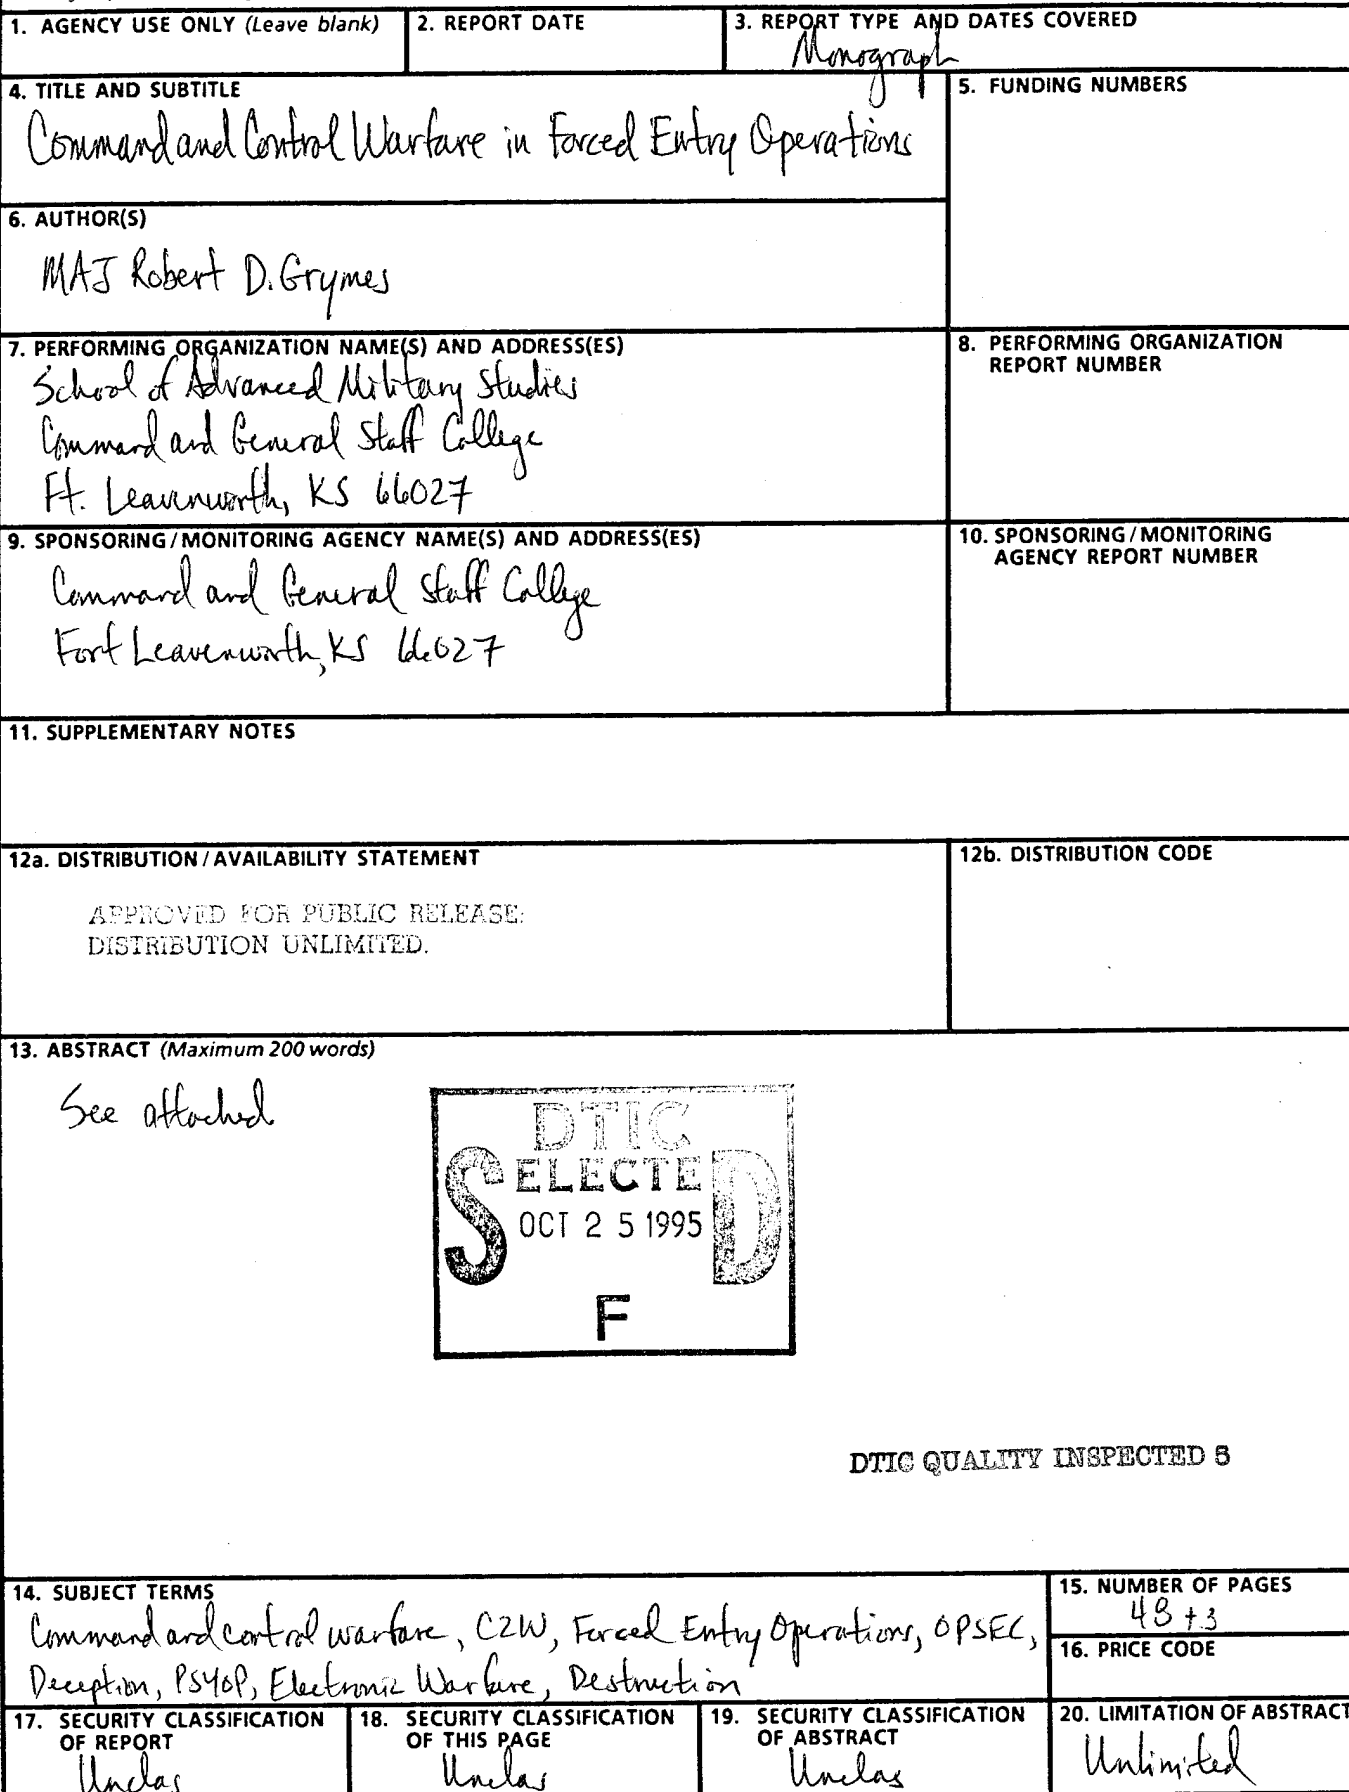 1. AGENCY USE ONLY (Leave blank)
2. REPORT DATE
3. REPORT TYPE AND DATES COVERED
Monograph
4. TITLE AND SUBTITLE
Command and Control Warfare in Forced Entry Operations
5. FUNDING NUMBERS
6. AUTHOR(S)
MAJ Robert D. Grymes
7. PERFORMING ORGANIZATION NAME(S) AND ADDRESS(ES)
School of Advanced Military Studies
Command and General Staff College
Ft. Leavenworth, KS 66027
8. PERFORMING ORGANIZATION
REPORT NUMBER
9. SPONSORING/MONITORING AGENCY NAME(S) AND ADDRESS(ES)
Command and General Staff College
Fort Leavenworth, KS 66027
10. SPONSORING/MONITORING
AGENCY REPORT NUMBER
11. SUPPLEMENTARY NOTES
12a. DISTRIBUTION/AVAILABILITY STATEMENT
APPROVED FOR PUBLIC RELEASE:
DISTRIBUTION UNLIMITED.
12b. DISTRIBUTION CODE
13. ABSTRACT (Maximum 200 words)
See attached
DTIC
SELECTED
OCT 25 1995
F
DTIC QUALITY INSPECTED
14. SUBJECT TERMS
Command and control warfare, C2W, Forced Entry Operations, OPSEC,
Deception, PSYOP, Electronic Warfare, Destruction
15. NUMBER OF PAGES
48+3
16. PRICE CODE
17. SECURITY CLASSIFICATION
OF REPORT
Unclas
18. SECURITY CLASSIFICATION
OF THIS PAGE
Unclas
19. SECURITY CLASSIFICATION
OF ABSTRACT
Unclas
20. LIMITATION OF ABSTRACT
Unlimited